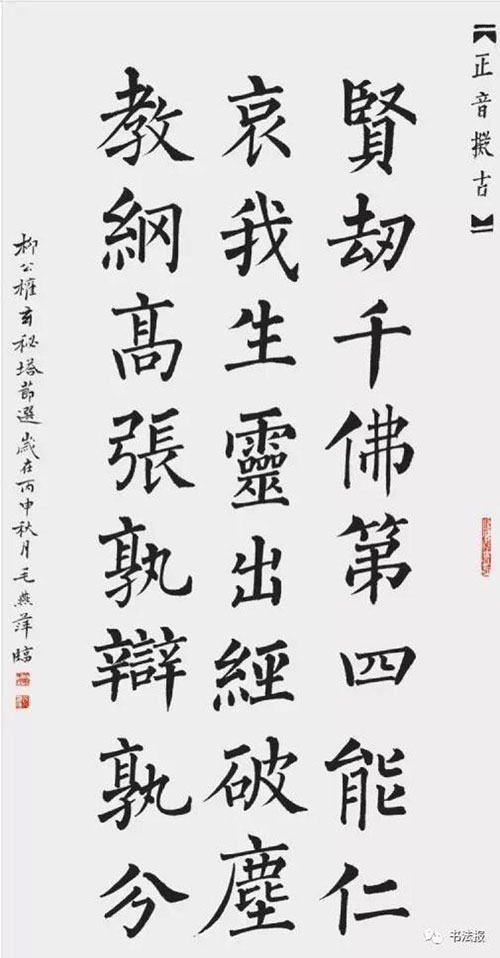 【正音擬古】
賢劫千佛第四能仁
哀我生靈出經破塵
教綱髙張孰辯孰分
柳公權玄秘塔節選歲在丙申秋月毛燕萍臨
书法报